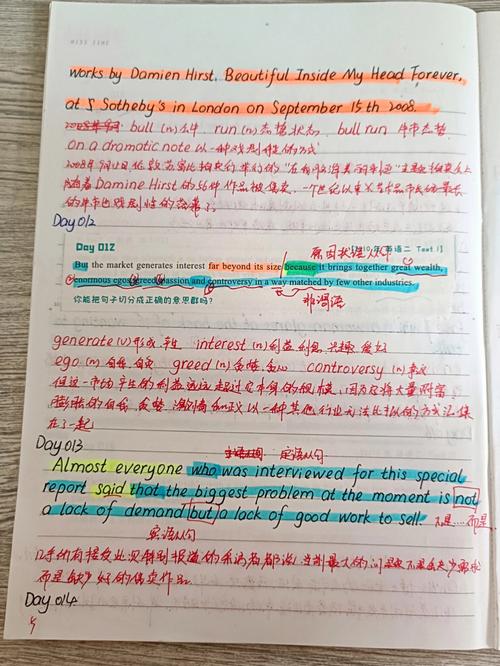 works by Damien Hirst, Beautiful Inside My Head Forever,
at S Sotheby's in London on September 15th 2008.
bull (n) 公牛 run (n) 态势 状态 bull run 牛市态势
on a dramatic note 以一种戏剧性的方式
Day 012
Day 012 英语二 Text 1]
原因状语从句
But the market generates interest far beyond its size because it brings together great wealth,
enormous egos, greed, passion and controversy in a way matched by few other industries.
你能把句子切分成正确的意思群吗?
非谓语
generate (v) 形成, 产生 interest (n) 利益 利息, 兴趣, 爱好
ego (n) 自我, 自负 greed (n) 贪婪, 贪心 controversy (n) 争议
但这一市场产生的利益远远超过它本身的规模, 因为它将大量财富,
膨胀的自我, 贪婪, 激情和争议以一种其他行业无法比拟的方式汇集
在了一起
Day 013
定语从句
Almost everyone who was interviewed for this special
report said that the biggest problem at the moment is not
a lack of demand but a lack of good work to sell. 不是……而是
宾语从句
几乎所有接受此次特别报道的采访者都说, 当前最大的问题不是缺少需求
而是缺少好的售卖作品.
Day 014